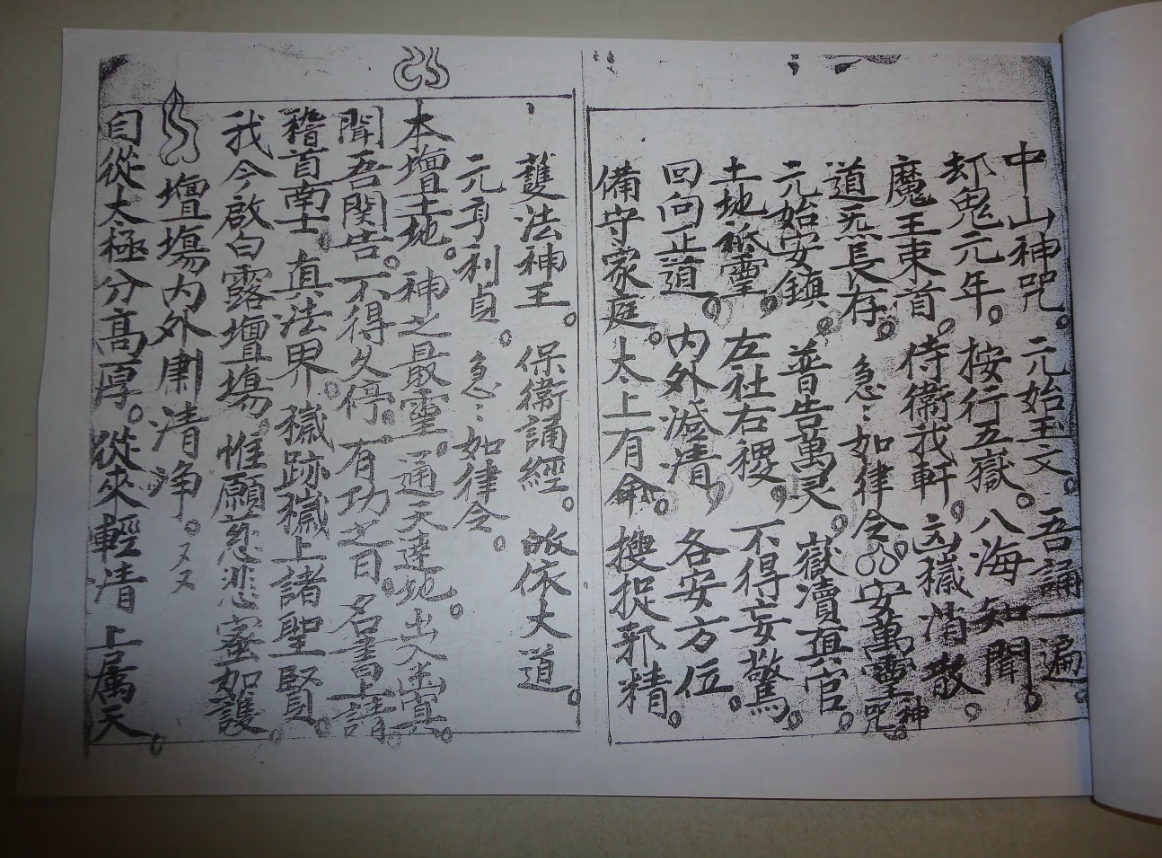 中山神咒。元始玉文。吾誦一遍。
却鬼元年。按行五嶽。八海知聞。
魔王束首。侍衛我軒。凶穢消散。
道炁長存。急〻如律令。安萬霊神咒。
元始安鎮。普告萬灵。嶽瀆真官。
土地祇霊。左社右稷。不得妄驚。
回向正道。内外澄清。各安方位。
備守家庭。太上有命。搜捉邪精。
護法神王。保衛誦經。皈依大道。
元亨利貞。急〻如律令。
本壇土地。神之最霊。通天達地。出入幽冥。
聞吾関告。不得久停。有功之日。名書上請。
稽首南士。真法界。穢跡穢上諸聖賢。
我今啟白露壇塲。惟願慈悲蜜加護。
壇塲内外肅清浄。又又
自從太極分高厚。從來輕清上属天。